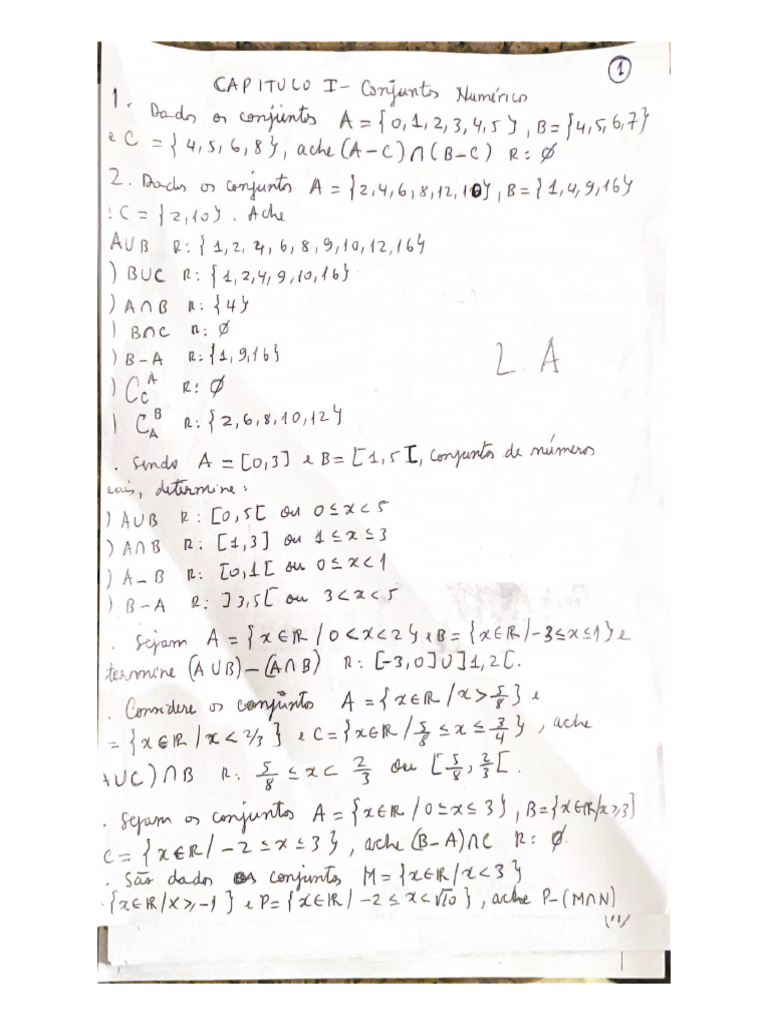 1
CAPITULO I - Conjuntos Numérico
1. Dados os conjuntos A = {0,1,2,3,4,5}, B = {4,5,6,7}
e C = {4,5,6,8}, ache (A-C)∩(B-C) R: ∅
2. Dados os conjunto A = {2,4,6,8,12,10}, B = {1,4,9,16}
: C = {2,10}. Ache
A∪B R: {1,2,4,6,8,9,10,12,16}
) B∪C R: {1,2,4,9,10,16}
) A∩B R: {4}
) B∩C R: ∅
) B-A R: {1,9,16}
L A
) C_C^A R: ∅
) C_A^B R: {2,6,8,10,12}
. Sendo A = [0,3] e B = [1,5[, conjuntos de números
eais, determine:
) A∪B R: [0,5[ ou 0≤x<5
) A∩B R: [1,3] ou 1≤x≤3
) A-B R: [0,1[ ou 0≤x<1
) B-A R: ]3,5[ ou 3<x<5
. Sejam A = {x∈ℝ/0<x<2} e B = {x∈ℝ/-3≤x≤1} e
termine (A∪B)-(A∩B) R: [-3,0]∪]1,2[.
. Considere os conjuntos A = {x∈ℝ/x>5/8} e
= {x∈ℝ/x<2/3} e C = {x∈ℝ/5/8≤x≤3/4}, ache
A∪C)∩B R: 5/8≤x<2/3 ou [5/8,2/3[.
. Sejam os conjuntos A = {x∈ℝ/0≤x≤3}, B = {x∈ℝ/x≥3}
C = {x∈ℝ/-2≤x≤3}, ache (B-A)∩C R: ∅.
. São dados os conjuntos M = {x∈ℝ/x<3}
{x∈ℝ/x≥-1} e P = {x∈ℝ/-2≤x<√10}, ache P-(M∩N)